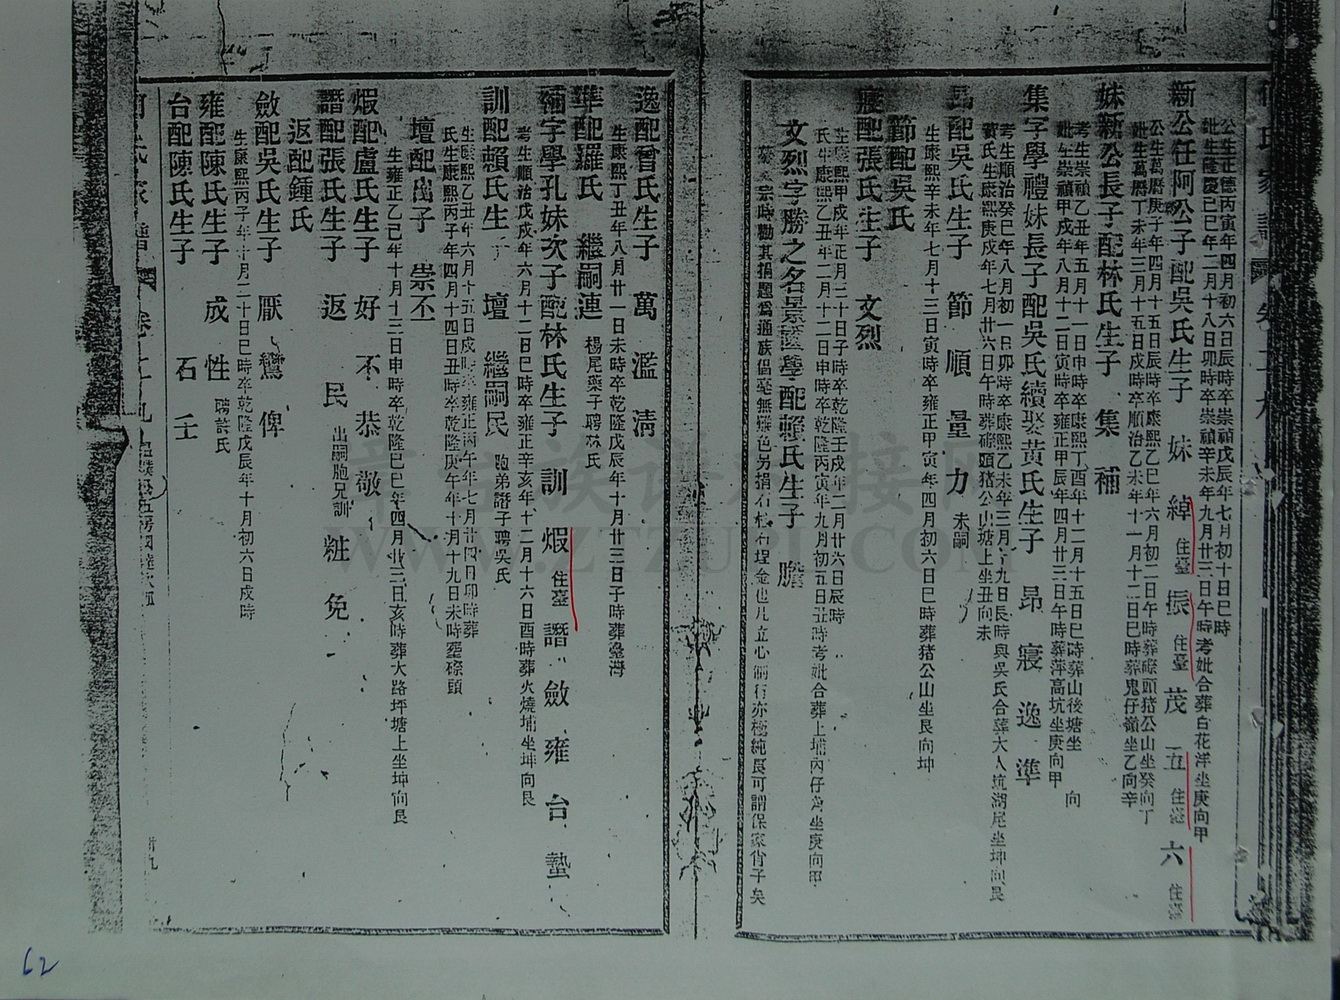 公生正德丙寅年四月初六日辰時卒崇禎戊辰年七月初十日巳時
妣生隆慶己巳年二月十八日卯時卒崇禎辛未年九月廿三日午時考妣合葬白花洋坐庚向甲
新公任阿公子配吳氏生子 妹 綽住臺 振住臺 茂 五住臺 六住臺
公生萬曆庚子年四月十五日辰時卒康熙乙巳年六月初二日午時葬磜頭猪公山坐癸向丁
妣生萬曆丁未年三月十五日戌時卒順治乙未年十一月十二日巳時葬鬼仔嶺坐乙向辛
妹新公長子配林氏生子 集 補
考生崇禎乙丑年五月十一日申時卒康熙丁酉年十二月十五日巳時葬山後塘坐 向
妣生崇禎甲戌年八月十二日寅時卒雍正甲辰年四月廿三日午時葬萍高坑坐庚向甲
集字學禮妹長子配吳氏續娶黃氏生子 昂 寢 逸 準
考生順治癸巳年八月初一日卯時卒康熙乙未年三月十九日辰時與吳氏合葬大人坑湖尾坐坤向艮
黃氏生康熙庚戌年七月廿六日午時葬磜頭猪公山塘上坐丑向未
昂配吳氏生子 節 順 量 力未嗣
生康熙辛未年七月十三日寅時卒雍正甲寅年四月初六日巳時葬猪公山坐艮向坤
節配吳氏
寢配張氏生子 文烈
生康熙甲戌年正月二十日子時卒乾隆壬戌年二月廿六日辰時
氏生康熙乙丑年二月十二日申時卒乾隆丙寅年九月初五日丑時考妣合葬上埔內仔 坐庚向甲
文烈字勝之名景 學配賴氏生子 膽
宗時勸其捐題爲通族倡毫無難色另捐石 石埕金也凡立心制行亦極純良可謂保家肖子矣
逸配曾氏生子 萬 濫 清
生康熙丁丑年八月廿一日未時卒乾隆戊辰年十月廿三日子時葬臺灣
準配羅氏 繼嗣連楊尾藥子聘林氏
補字學孔妹次子配林氏生子 訓 煆住臺 譖 斂 雍 台 蟄
考生順治戊戌年六月十二日巳時卒雍正辛亥年十二月十六日酉時葬火燒埔坐坤向艮
訓配賴氏生子 壇 繼嗣民胞弟譖子聘吳氏
生康熙乙丑年六月十五日戌時卒雍正丙午年七月廿四日卯時葬
氏生康熙丙子年四月十四日丑時卒乾隆庚午年十月十九日未時葬磜頭
壇配 子 崇丕
生雍正乙巳年十月十三日申時卒乾隆己巳年四月廿三日亥時葬大路坪塘上坐坤向艮
煆配盧氏生子 好 不 恭 敬
譖配張氏生子 返 民出嗣胞兄訓 粧 免
返配鍾氏
斂配吳氏生子 厭 鸞 俾
生康熙丙子年十月二十日巳時卒乾隆戊辰年十月初六日戌時
雍配陳氏生子 成 性聘許氏
台配陳氏生子 石 壬
62
WWW.ZTZUPU.COM